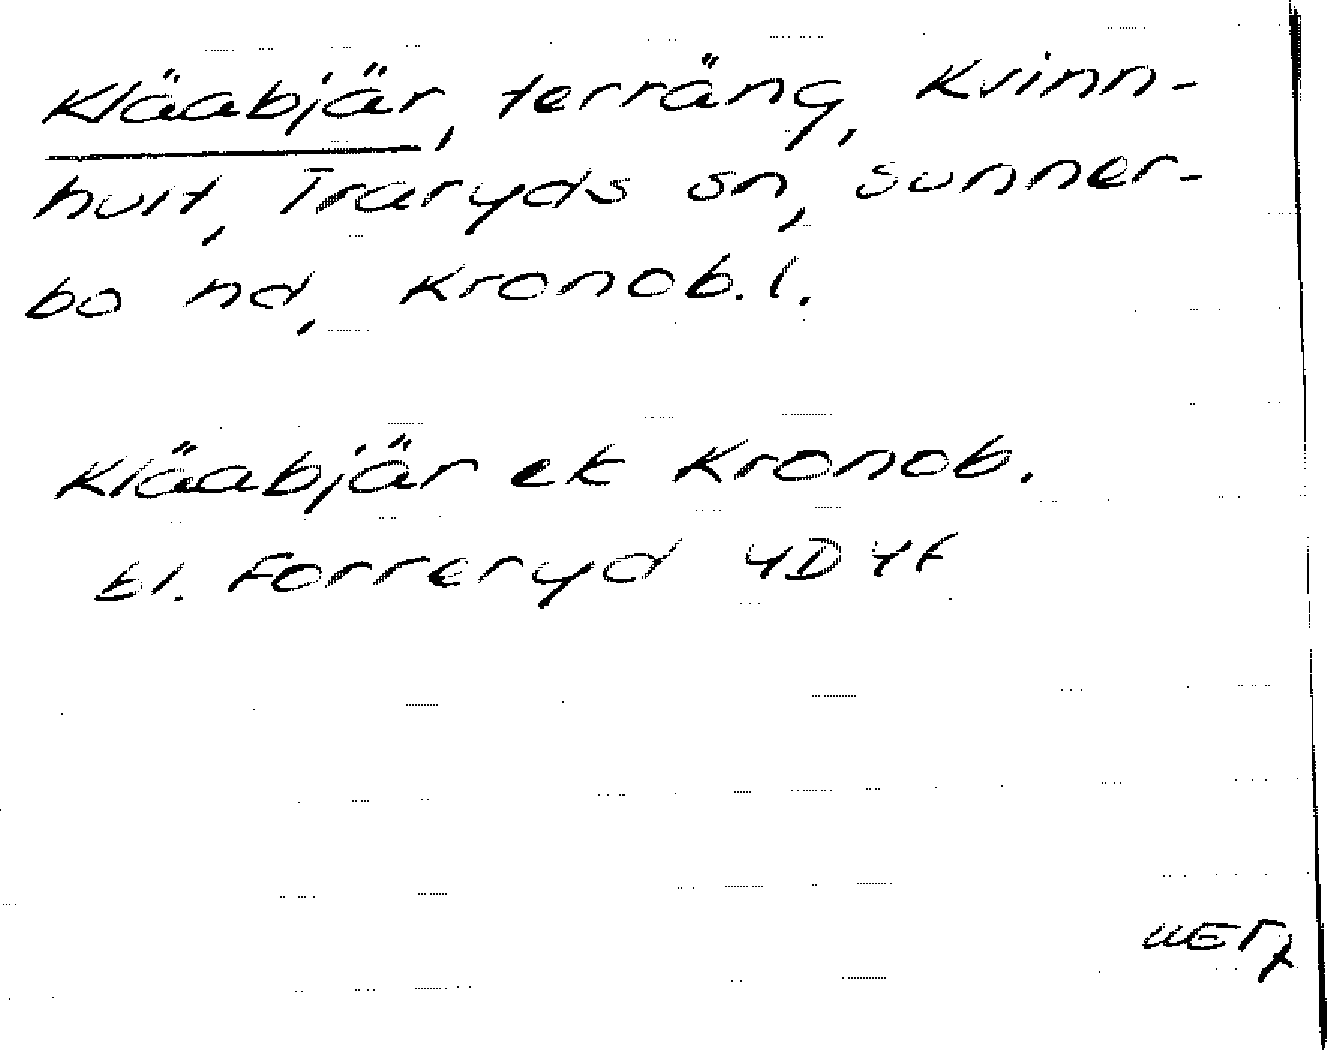 Kläabjär, terräng, Kvinn-
hult, Traryds sn, Sunner-
bo hd, Kronob. l.
Kläabjär ek Kronob.
bl. Forreryd 4D4f